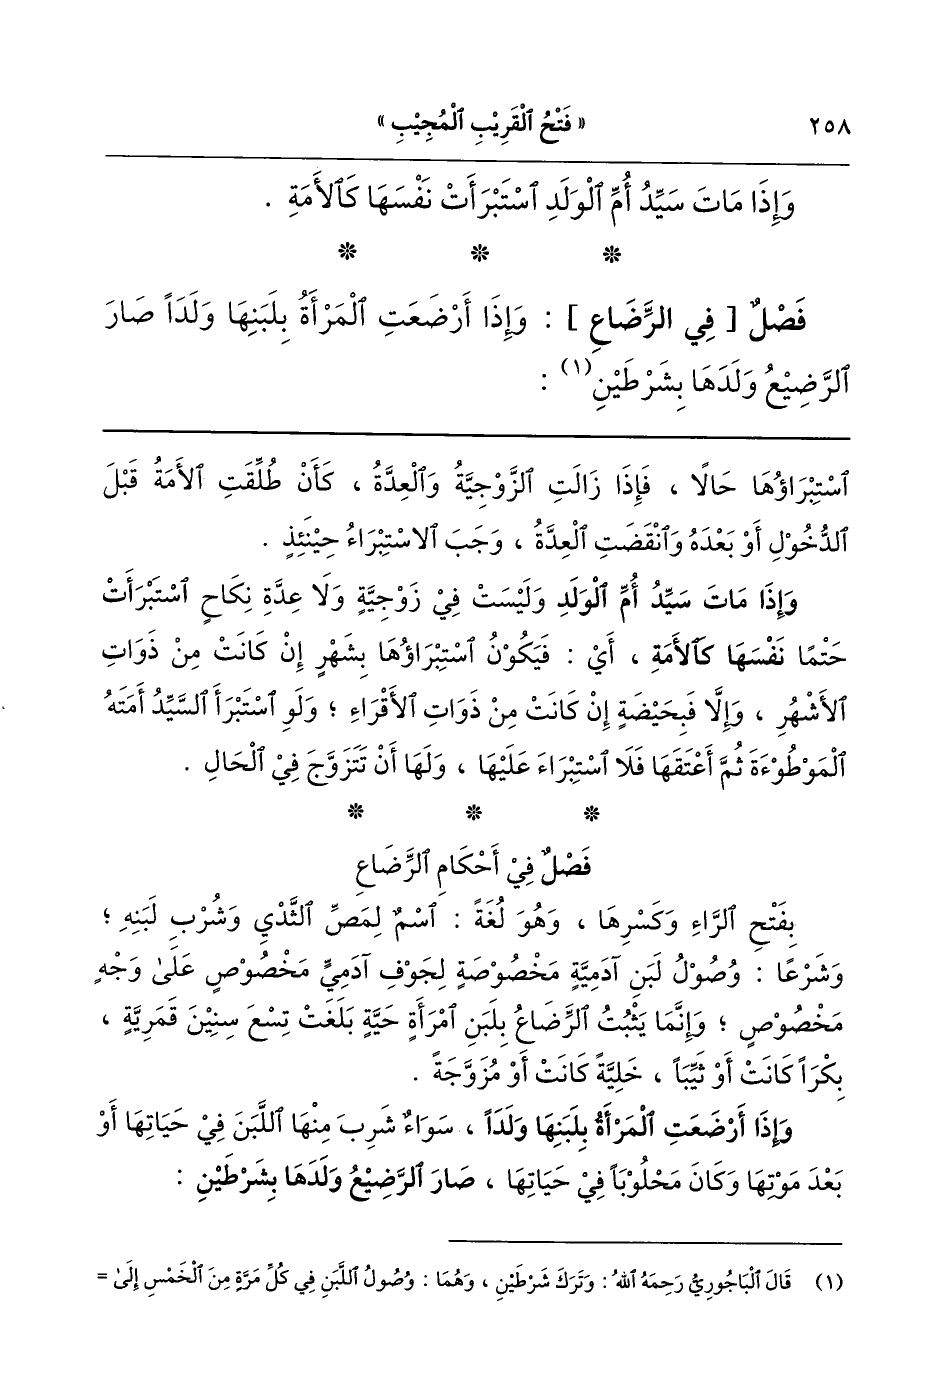 ٢٥٨ « فَتْحُ ٱلْقَرِيْبِ ٱلْمُجِيْبِ »
وَإِذَا مَاتَ سَيِّدُ أُمِّ ٱلْوَلَدِ ٱسْتَبْرَأَتْ نَفْسَهَا كَٱلأَمَةِ .
* * *
فَصْلٌ [ فِي الرَّضَاعِ ] : وَإِذَا أَرْضَعَتِ ٱلْمَرْأَةُ بِلَبَنِهَا وَلَدَاً صَارَ
ٱلرَّضِيْعُ وَلَدَهَا بِشَرْطَيْنِ(١) :
ٱسْتِبْرَاؤُهَا حَالًا ، فَإِذَا زَالَتِ ٱلزَّوْجِيَّةُ وَٱلْعِدَّةُ ، كَأَنْ طُلِّقَتِ ٱلأَمَةُ قَبْلَ
ٱلدُّخُوْلِ أَوْ بَعْدَهُ وَٱنْقَضَتِ ٱلْعِدَّةُ ، وَجَبَ ٱلاسْتِبْرَاءُ حِيْنَئِذٍ .
وَإِذَا مَاتَ سَيِّدُ أُمِّ ٱلْوَلَدِ وَلَيْسَتْ فِيْ زَوْجِيَّةٍ وَلَا عِدَّةِ نِكَاحٍ ٱسْتَبْرَأَتْ
حَتْمًا نَفْسَهَا كَٱلأَمَةِ ، أَيْ : فَيَكُوْنُ ٱسْتِبْرَاؤُهَا بِشَهْرٍ إِنْ كَانَتْ مِنْ ذَوَاتِ
ٱلأَشْهُرِ ، وَإِلَّا فَبِحَيْضَةٍ إِنْ كَانَتْ مِنْ ذَوَاتِ ٱلأَقْرَاءِ ؛ وَلَوِ ٱسْتَبْرَأَ ٱلسَّيِّدُ أَمَتَهُ
ٱلْمَوْطُوْءَةَ ثُمَّ أَعْتَقَهَا فَلَا ٱسْتِبْرَاءَ عَلَيْهَا ، وَلَهَا أَنْ تَتَزَوَّجَ فِيْ ٱلْحَالِ .
* * *
فَصْلٌ فِيْ أَحْكَامِ ٱلرَّضَاعِ
بِفَتْحِ ٱلرَّاءِ وَكَسْرِهَا ، وَهُوَ لُغَةً : ٱسْمٌ لِمَصِّ ٱلثَّدْيِ وَشُرْبِ لَبَنِهِ ؛
وَشَرْعًا : وُصُوْلُ لَبَنِ آدَمِيَّةٍ مَخْصُوْصَةٍ لِجَوْفِ آدَمِيٍّ مَخْصُوْصٍ عَلَىٰ وَجْهٍ
مَخْصُوْصٍ ؛ وَإِنَّمَا يَثْبُتُ ٱلرَّضَاعُ بِلَبَنِ ٱمْرَأَةٍ حَيَّةٍ بَلَغَتْ تِسْعَ سِنِيْنَ قَمَرِيَّةٍ ،
بِكْرَاً كَانَتْ أَوْ ثَيِّبَاً ، خَلِيَّةً كَانَتْ أَوْ مُزَوَّجَةً .
وَإِذَا أَرْضَعَتِ ٱلْمَرْأَةُ بِلَبَنِهَا وَلَدَاً ، سَوَاءٌ شَرِبَ مِنْهَا ٱللَّبَنَ فِيْ حَيَاتِهَا أَوْ
بَعْدَ مَوْتِهَا وَكَانَ مَحْلُوْبَاً فِيْ حَيَاتِهَا ، صَارَ ٱلرَّضِيْعُ وَلَدَهَا بِشَرْطَيْنِ :
(١) قَالَ ٱلْبَاجُورِيُّ رَحِمَهُ ٱللهُ : وَتَرَكَ شَرْطَيْنِ ، وَهُمَا : وُصُولُ ٱللَّبَنِ فِي كُلِّ مَرَّةٍ مِنَ ٱلْخَمْسِ إِلَىٰ =